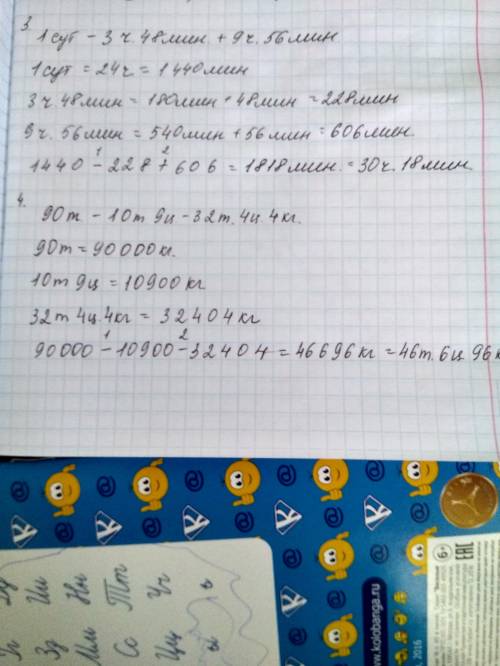 3.
1 сут - 3 ч. 48 мин. + 9 ч. 56 мин
1 сут = 24 ч = 1440 мин
3 ч. 48 мин = 180 мин + 48 мин = 228 мин
9 ч. 56 мин = 540 мин + 56 мин = 606 мин.
1 2
1440 - 228 + 606 = 1818 мин. = 30 ч. 18 мин.
4.
90 т - 10 т 9 ц - 32 т. 4 ц. 4 кг.
90 т = 90 000 кг.
10 т 9 ц = 10900 кг
32 т 4 ц. 4 кг = 32404 кг
1 2
90000 - 10900 - 32404 = 46696 кг = 46 т. 6 ц 96 к
www.kolobanga.ru
6+
EAC
2016
К
К
К
К
Ии
Нн
Тт
Чч
Зз
Мм
Сс
Цц
ы
ь